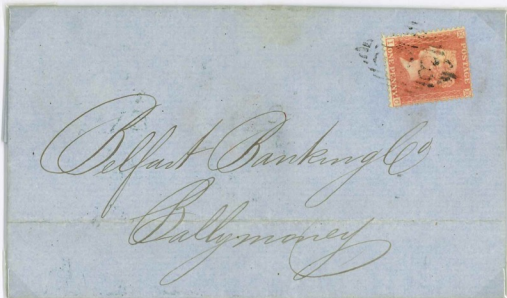 Belfast Banking Co
Ballymoney